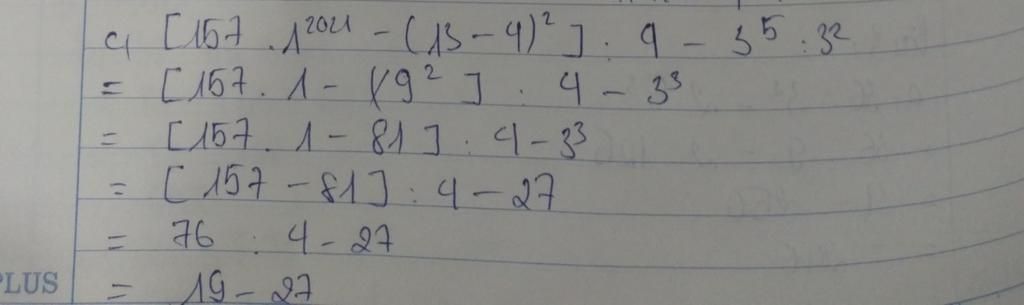 c, [157 . 1²⁰²¹ - (13 - 4)²] : 4 - 3⁵ : 3²
= [157 . 1 - (9²] : 4 - 3³
= [157 . 1 - 81] : 4 - 3³
= [157 - 81] : 4 - 27
= 76 : 4 - 27
PLUS
= 19 - 27